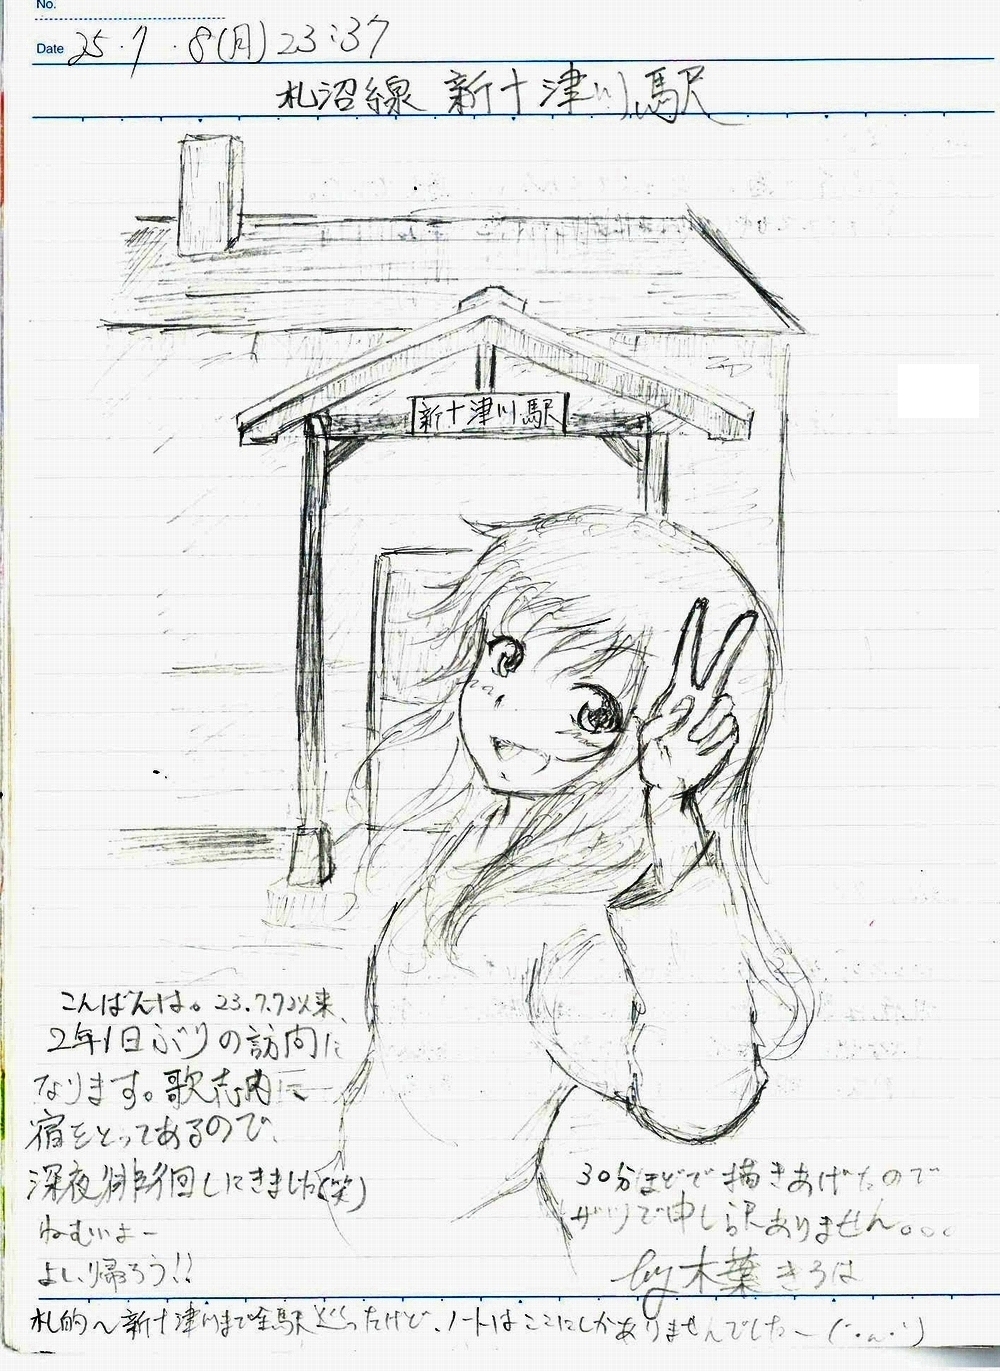 No.
Date 25・7・8(月) 23:37
札沼線 新十津川駅
新十津川駅
こんばんは。23.7.7以来、
2年1日ぶりの訪問に
なります。歌志内に
宿をとってあるので、
深夜徘徊しにきました(笑)
ねむいよー
よし、帰ろう!!
30分ほどで描きあげたので
ザツで申し訳ありません。。。
by 木葉きろは
札的〜新十津川まで全駅巡ったけど、ノートはここにしかありませんでした〜